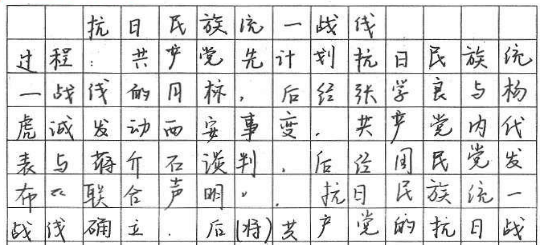 抗日民族统一战线
过程:共产党先计划抗日民族统
一战线的目标,后经张学良与杨
虎诚发动西安事变.共产党内代
表与蒋介石谈判.后经国民党发
布《联合声明》.抗日民族统一
战线确立.后(将)共产党的抗日战